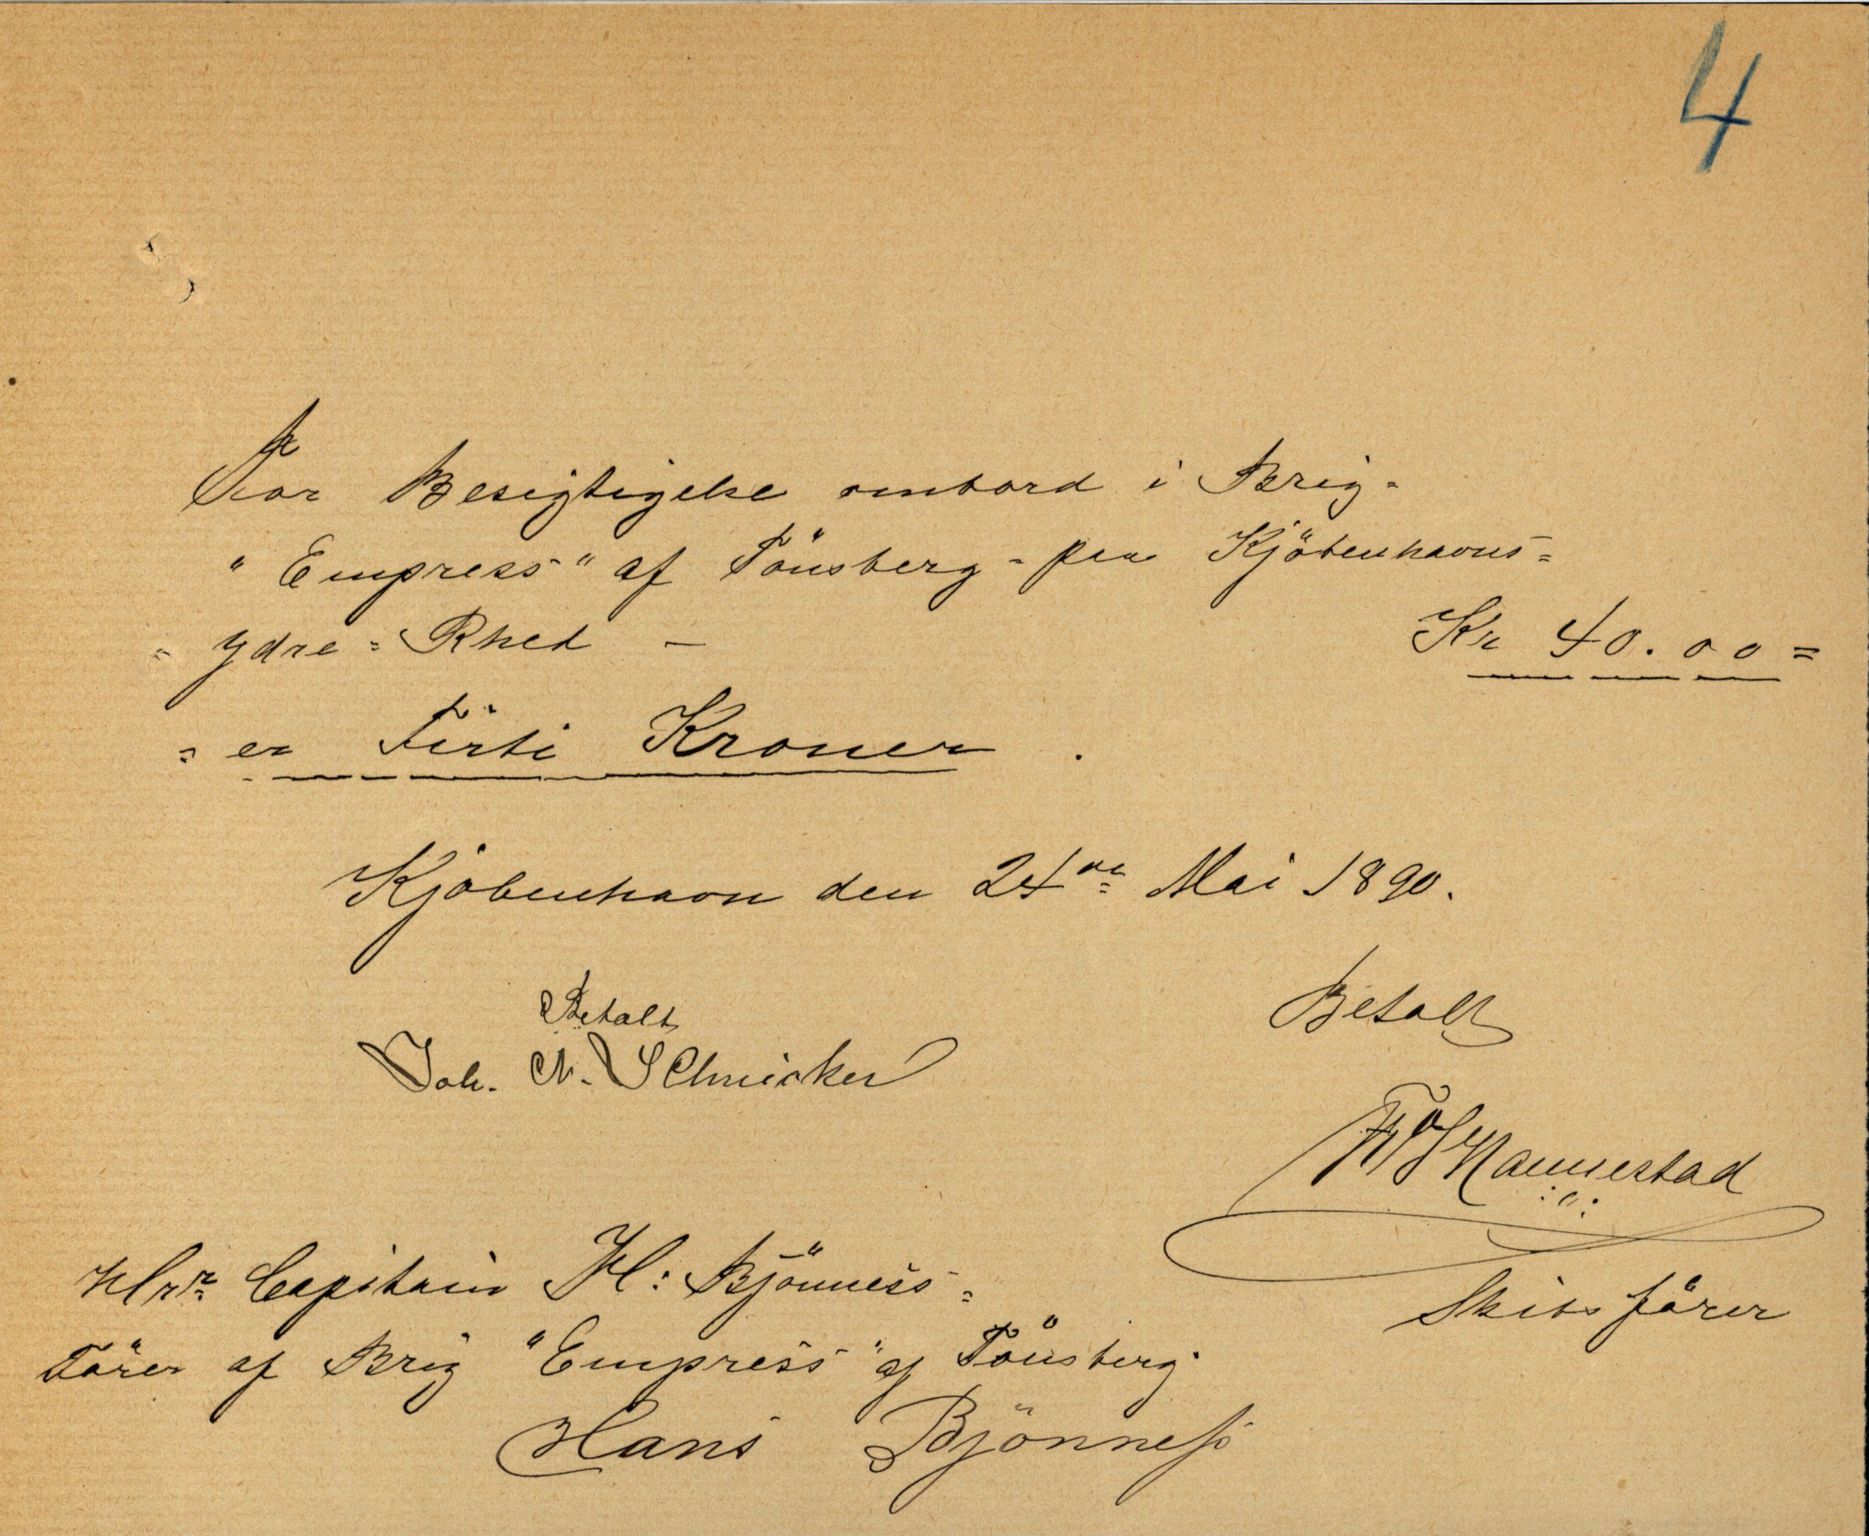 4
For Besigtigelse ombord i Brig-
"Empress" af Tönsberg - paa Kjöbenhavns =
= ydre = Rhed —
Kr 40.00 =
= er Firti Kroner.
Kjöbenhavn den 24de Mai 1890.
Betalt
Betalt
Joh. N. Schnicker
Nannestad
Hrr Capitain H: Bjönness =
Skibsförer
Förer af Brig "Empress" af Tönsberg
Hans Bjönness